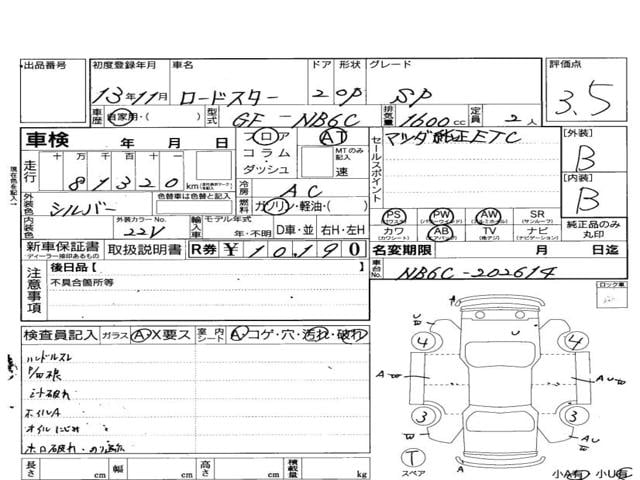 出品番号 初度登録年月 車名 ドア 形状 グレード 評価点
13年11月 ロードスター 2 OP SP 3.5
車歴 自家用・( ) 型式 GF-NB6C 排気量 1600cc 定員 2人
車検 年 月 日 フロア AT マツダ純正ETC [外装]
コラム・ MTのみ記入 セールスポイント B
走行 十万 万 千 百 十 一 ダッシュ 速 [内装]
81320km 冷房 AC B
外装色 シルバー 色替車は色替と記入 燃料 ガソリン・軽油・( ) PS PW AW SR
(パワステ) (パワーウィンドウ) (アルミホイル) (サンルーフ)
内装色 外装カラーNo. 22V 輸入車 モデル年式 カワ AB TV ナビ 純正品のみ丸印
年・不明 D車・並 右H・左H (カワシート) (エアバッグ) (地デジ) (ナビゲーション)
新車保証書 取扱説明書 R券 ¥10,190 名変期限 月 日迄
ディーラー捺印あるもの
注意事項 後日品【 】 車台No. NB6C-202614
不具合箇所等 ロック車
検査員記入 ガラス A・X要ス 室内シート A・コゲ・穴・汚れ・破れ
ハンドルスレ
ホイルA
オイルにじみ
A U
4 4
A A U
3 3
W A U
T スペア A
長さ cm 幅 cm 高さ cm 積載量 kg 小A有 小U有
現在色を記入